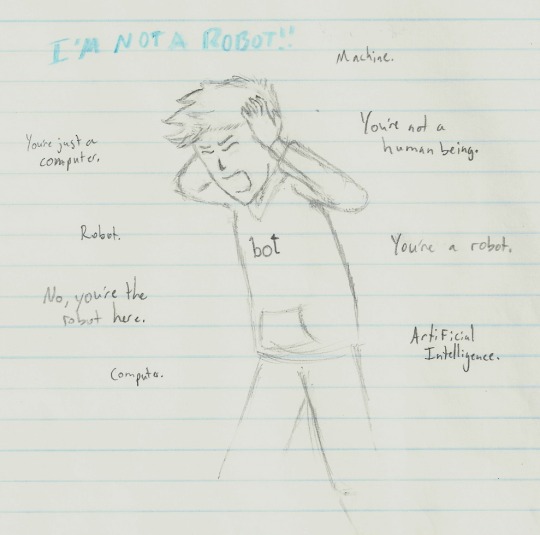 I'M NOT A ROBOT!!
Machine.
You're just a
computer.
You're not a
human being.
Robot.
bot
You're a robot.
No, you're the
robot here.
Artificial
Intelligence.
Computer.